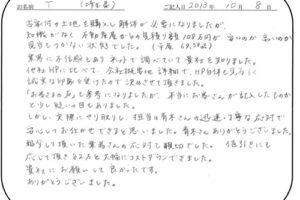 お名前 T (埼玉県) ご記入日 2013年 10月 8日
古家付の土地を購入し解体が必要になりましたが、
知識がなく不動産屋からの見積り額108万円が高いのか安いのか
見当もつかない状態でした。
業界に不信感もありネットで調べていて貴社を知りました。
他社HPに比べて、会社概要も詳細で、HP自体も見やすく
誠実な印象を受けたので決めさせて頂きました。
「お客さまの声」も参考になりましたが、本当にお客さんが記入したものか
と少し疑いの目もありました。
しかし、実際にやり取りし、担当の青木さんの迅速・丁寧な応対で
安心してお任せできると思いました。青木さんありがとうございました。
紹介して頂いた業者さんの応対も親切でした。値引きにも
応じて頂き大幅にコストダウンできました。
貴社にお願いして良かったです。
ありがとうございました。